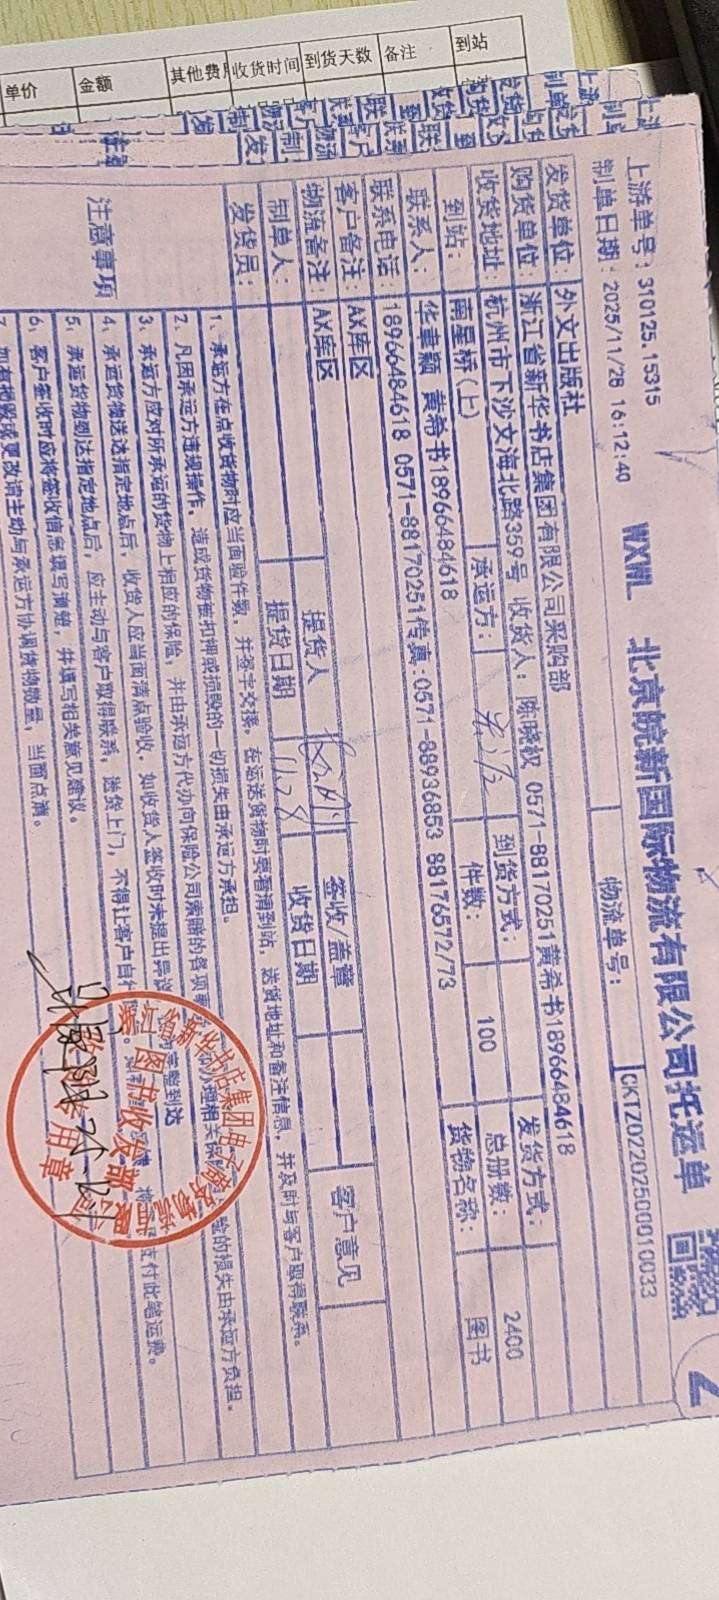 单价 金额 收货时间 到货天数 备注 到站
上游单号：310125.15315
WXWL 北京皖新国际物流有限公司托运单
制单日期：2025/11/28 16:12:40 物流单号： CKTZ0220250001 0033
2
发货单位： 外文出版社 发货方式：
购货单位： 浙江省新华书店集团有限公司采购部
收货地址： 杭州市下沙文海北路359号 收货人：陈晓权 0571-88170251黄希书18966484618
到站： 南星桥(上) 承运方： 到货方式： 总册数： 2400
件数： 100 货物名称： 图书
联系人： 华聿颖 黄希书18966484618
联系电话： 18966484618 0571-88170251传真:0571-88936853 88176572/73
客户备注： AK库区
物流备注： AK库区
制单人： 提货人 签收/盖章 客户意见
发货员： 提货日期 11.28 收货日期
注意事项
1、承运方在点收货物时应当面验件数，并签字交接。在运送货物时要看清到站、送货地址和备注信息，并及时与客户取得联系。
2、凡因承运方违规操作，造成货物被扣押或损毁的一切损失由承运方承担。
3、承运方应对所承运的货物上相应的保险，并由承运方代办向保险公司索赔的各项事 的损失由承运方负担。
4、承运货物送达指定地点后，收货人应当面清点验收，如收货人签收时未提出异议
5、承运货物到达指定地点后，应主动与客户取得联系，送货上门，不得让客户自 支付此笔运费。
6、客户签收时应将签收信息填写清楚，并填写相关意见建议。
7、如有损毁或更改请主动与承运方协调货物数量，当面点清。
浙江省新华书店集团电子商务物流有限公司
图书收货部
收货专用章